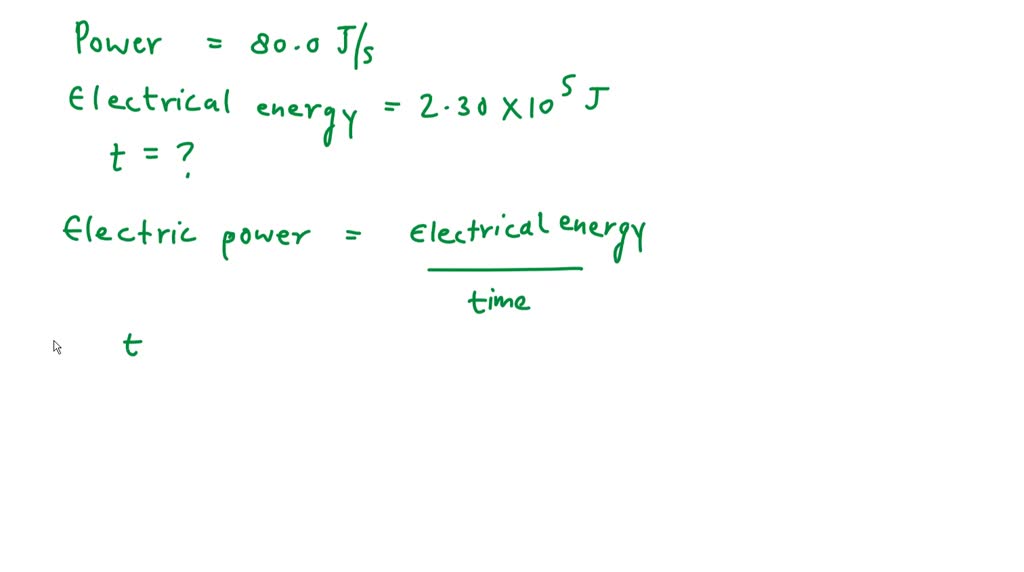 Power = 80.0 J/s
Electrical energy = 2.30 X 10⁵ J
t = ?
Electric power = Electrical energy
time
t